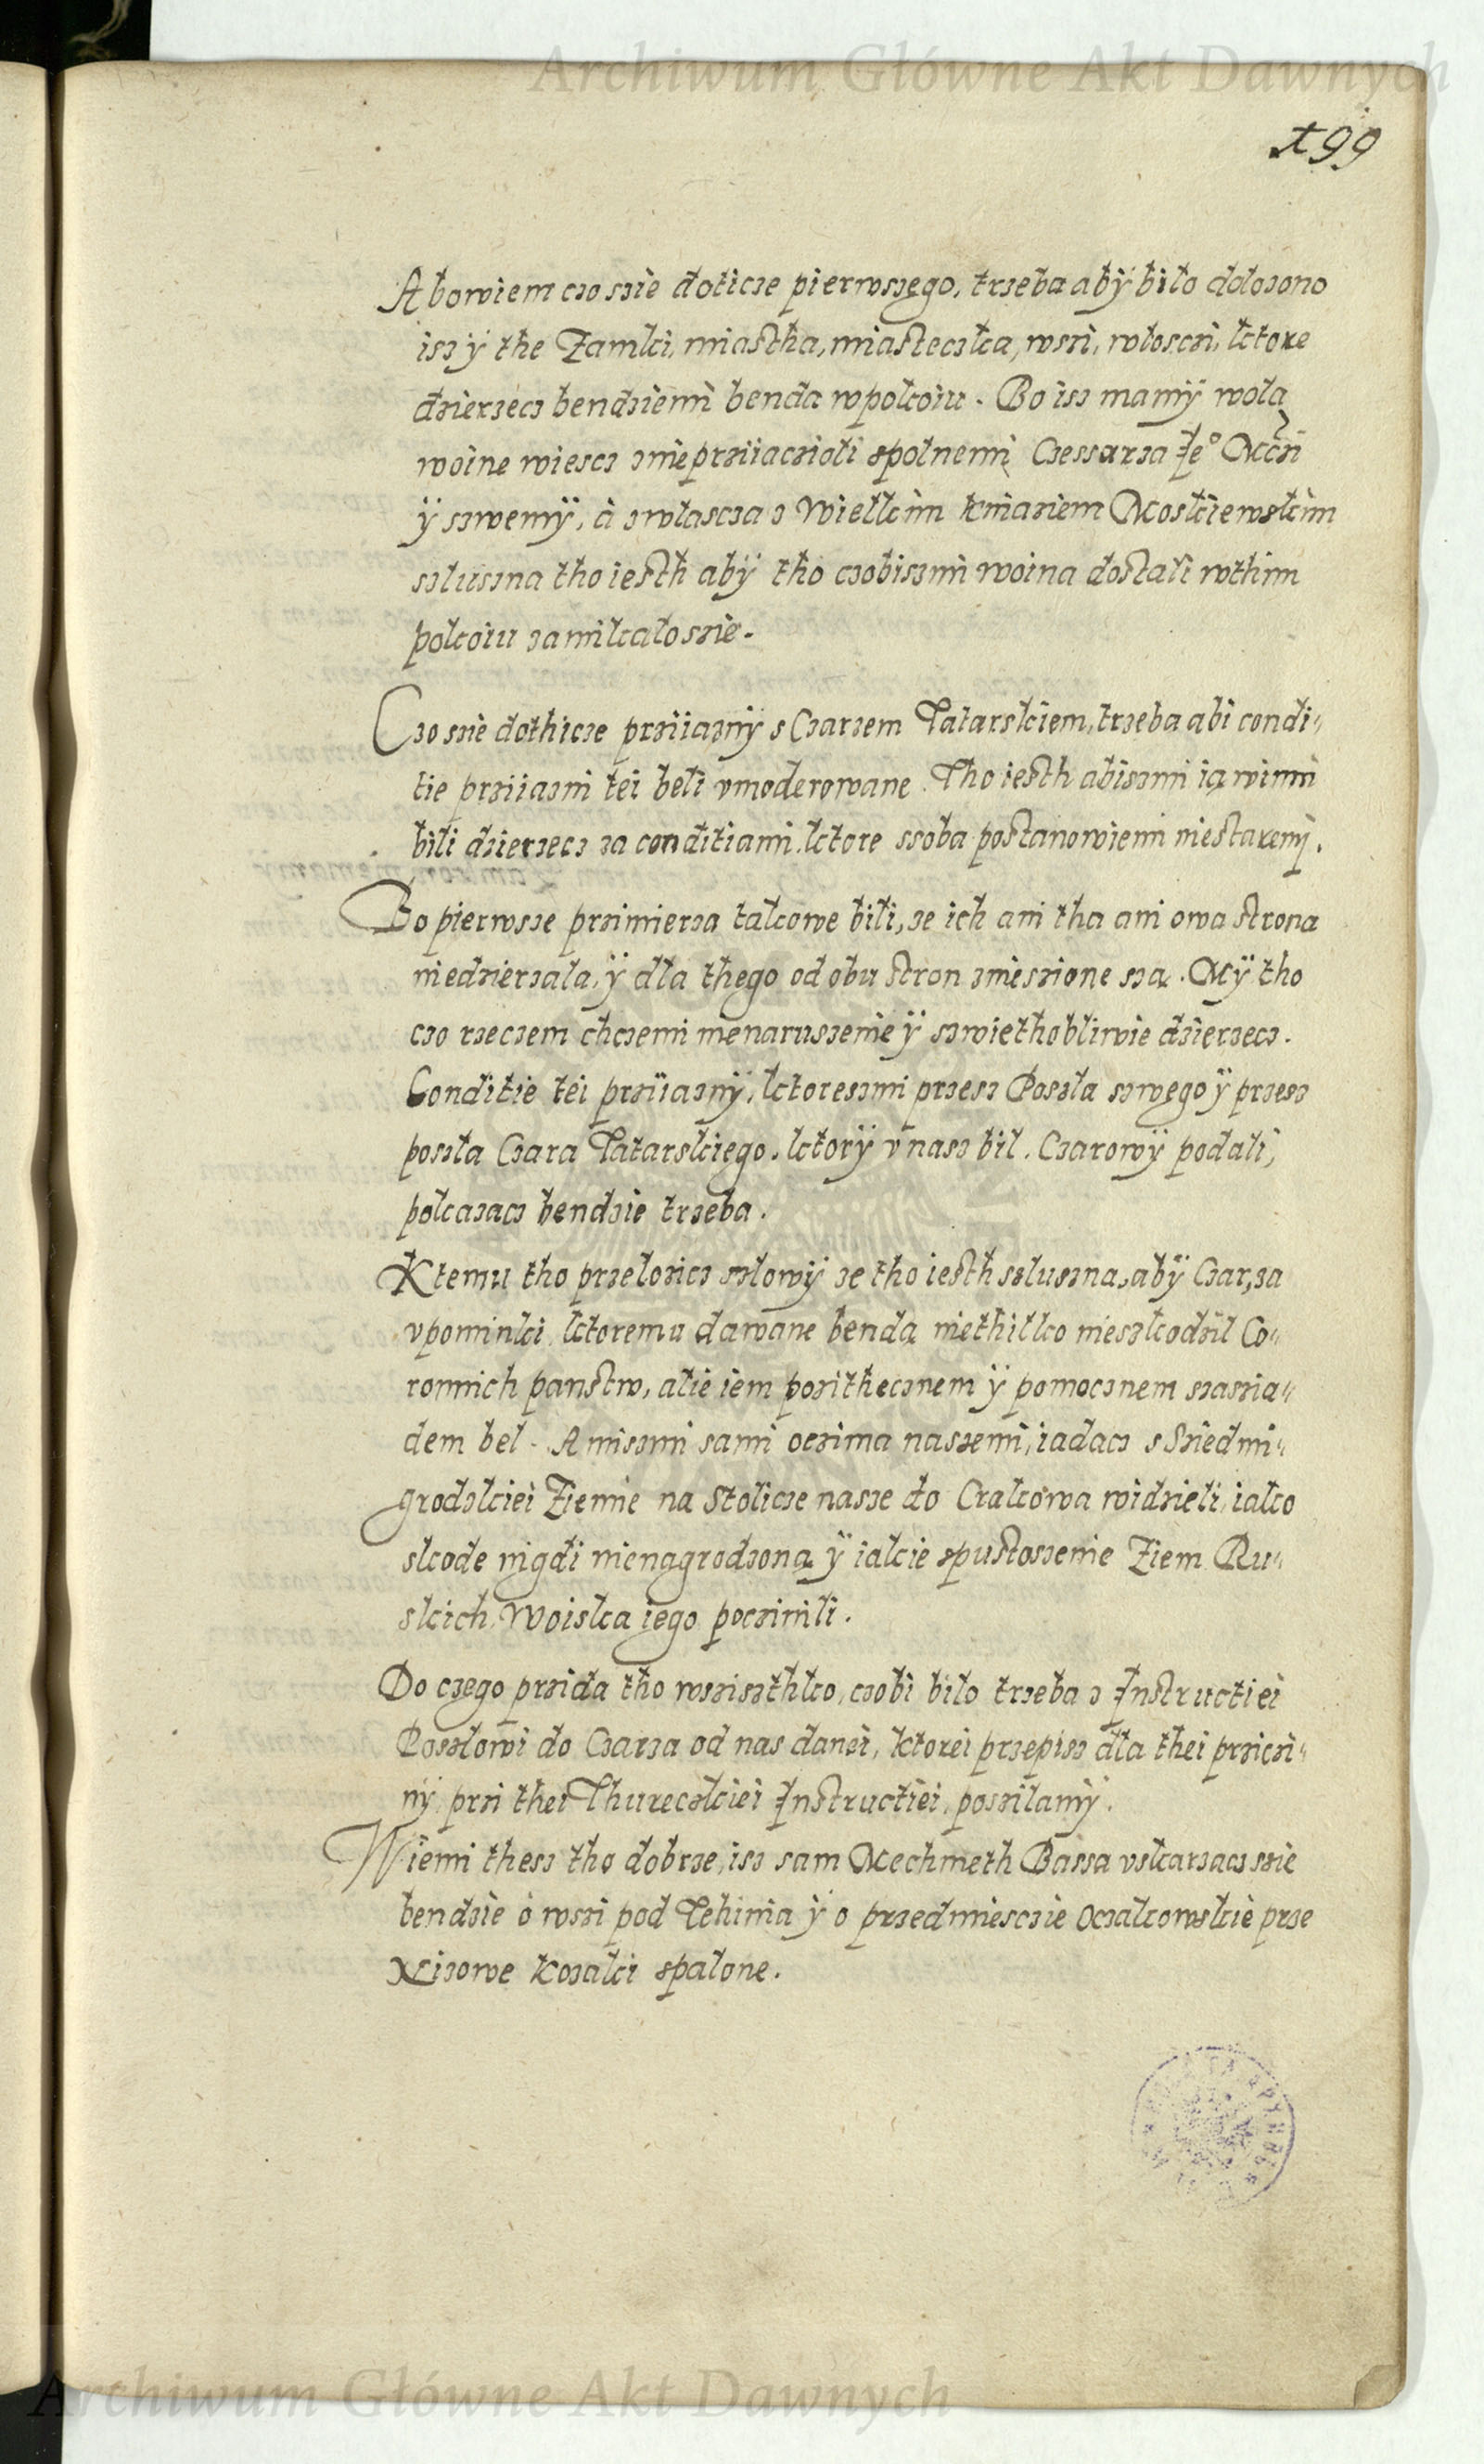 Archiwum Główne Akt Dawnych
199
Abowiem czo szie doticze pierwszego, trzeba abÿ biło dołozono
isz ÿ the Zamki, miastha, miasteczka, wszi, włosczi, ktore
dzierzecz bendziemi benda wpokoiu. Bo isz mamÿ wolą
woine wiescz znieprziiaczioli spolnemi Czessarza Je° Mczi
ÿ szwemÿ, à zwłascza z Wielkim kniaziem Moskiewskim
szlusзna tho iesth abÿ tho czobiszmi woina dostali wthim
pokoiu zamikało szie.
Czo szie dothicze prziiaznÿ s Czarzem Tatarskiem, trzeba abi condi„
tie prziiazni tei beli vmoderowane. Tho iesth abiszmi ią winni
bili dzierzecz za conditiami, ktore ssoba postanowiemi niestaremi.
Bo pierwsze przimierza takowe bili, ze ich ani tha ani owa strona
niedzierzala, ÿ dla thego od obu stron zniesione sza. Mÿ tho
czo rzeczem chczemi nienaruszenie ÿ szwiethobliwie dzierzecz.
Conditie tei prziiaznÿ, ktoreszmi przesz Poszla szwego ÿ przesz
poszła Czara Tatarskiego, ktorÿ v nasz bil, Czarowÿ podali,
pokazacz bendzie trzeba.
Ktemu tho przełozicz szlowÿ ze tho iesth szluszna, abÿ Czar, za
vpominki, ktoremu dawane benda niethilko nieszkodzil Co„
ronnich panstw, alie iem pozitheczem ÿ pomocznem szaszia„
dem bel. A miszmi sami oczima naszemi, iadacz s Sziedmi„
grodzkiei Ziemie na Stolicze nasze do Crakowa widzieli, iako
skode nigdi nienagrodzoną ÿ iakie spustoszenie Ziem Ru„
skich, Woiska iego poczinili.
Do czego przida tho wszisztkko, czobi bilo trzeba z Instructiei
Poszlowi do Czarza od nas danei, ktorei przepisz dla thei przicзi„
nÿ, przi thei Thureczkiei Instructiei, poszilamÿ.
Wiemi thesz tho dobrze, isz sam Mechmeth Bassa vskarzacz szie
bendzie o wszi pod Tehinia ÿ o przedmiesczie Oczakowskie prze
Nizowe kozaki spalone.
Archiwum Główne Akt Dawnych